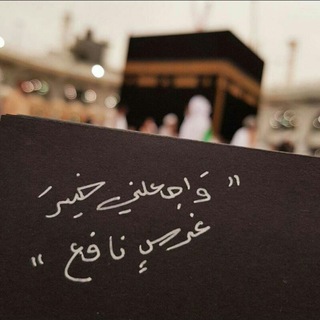 " وَاجعلني خيرَ
غرسٍ نافع "